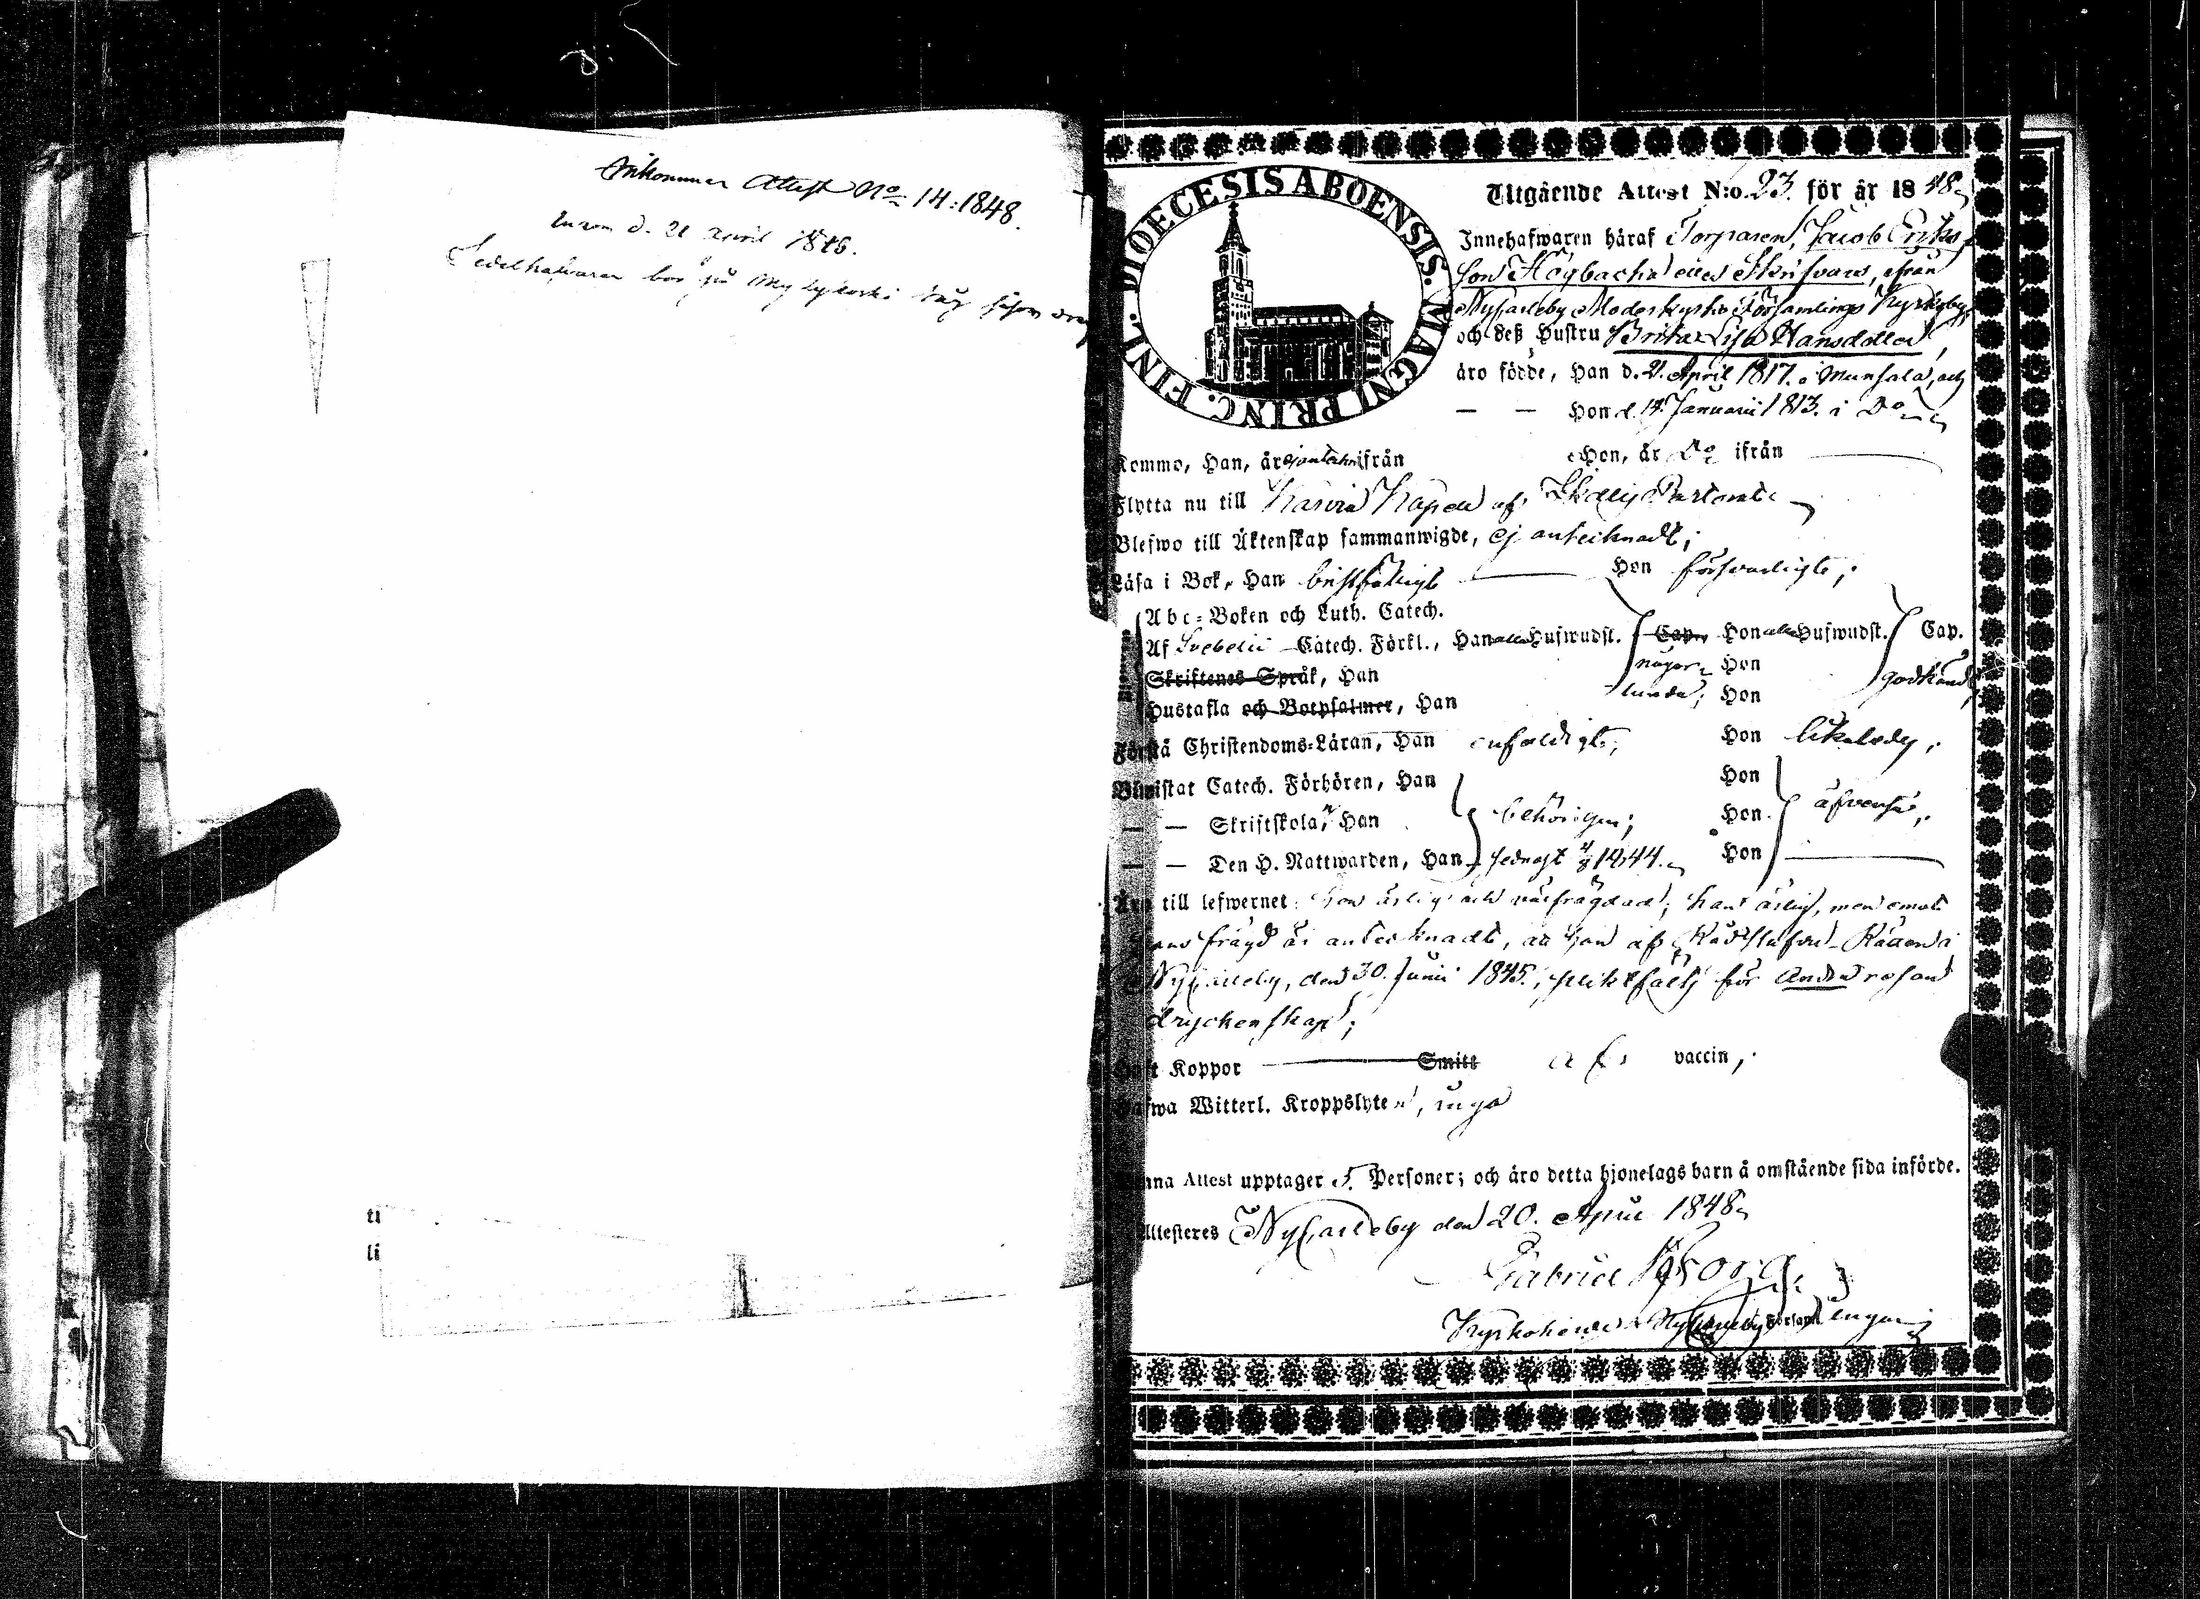 Inkommen Attest No 14: 1848.
d. 21 April 1848.
Sedelhafvaren bor på
DIOECESIS ABOENSIS. MAGNI PRINC. FINL.
Utgående Attest N:o. 23. för år 1848
Innehafwaren häraf Torparen, Jacob Eriks
son Högbacka eller Skrifvars, ifrån
Nycarleby Moderkyrko Församlings Kyrkoby,
och deß Hustru Brita Lisa Hansdotter,
äro födde, Han d. 2. April 1817. i Munsala, och
— — Hon d. 14. Januarii 1813. i Do
Komme, Han, år ej anteckn. ifrån Hon, år Do ifrån
Flytta nu till Kapell af
Blefwo till Äktenskap sammanwigde, ej antecknadt;
Läsa i Bok, Han bristfälligt Hon försvarligt;
Abc-Boken och Luth. Catech.
Af Svebelii Catech. Förkl., Han alla Hufwudst. Cap. Hon alla Hufwudst. Cap.
Skriftenes Språk, Han någor- Hon godkändt,
Hustafla och Botpsalmer, Han lunda; Hon
Förstå Christendoms-Läran, Han enfaldigt; Hon likaledes,
Bewistat Catech. Förhören, Han Hon
— — Skriftskola, Han behörigen; Hon äfvenså,
— — Den H. Nattwarden, Han sednast Hon
Äro till lefwernet: hon ärlig och välfrägdad; han ärlig, men emot
hans frägd är antecknadt, att han af Rådstufvu-Rätten i
Nycarleby, den 30. Junii 1845, pliktfälts för andra resans
dryckenskap;
Haft Koppor Smitt af vaccin,
Hafwa Witterl. Kroppslyten, inga
Denna Attest upptager 5. Personer; och äro detta hjonelags barn å omstående sida införde.
Attesteres Nycarleby den 20. April 1848
Gabriel
Kyrkoherde i Nycarleby Församl